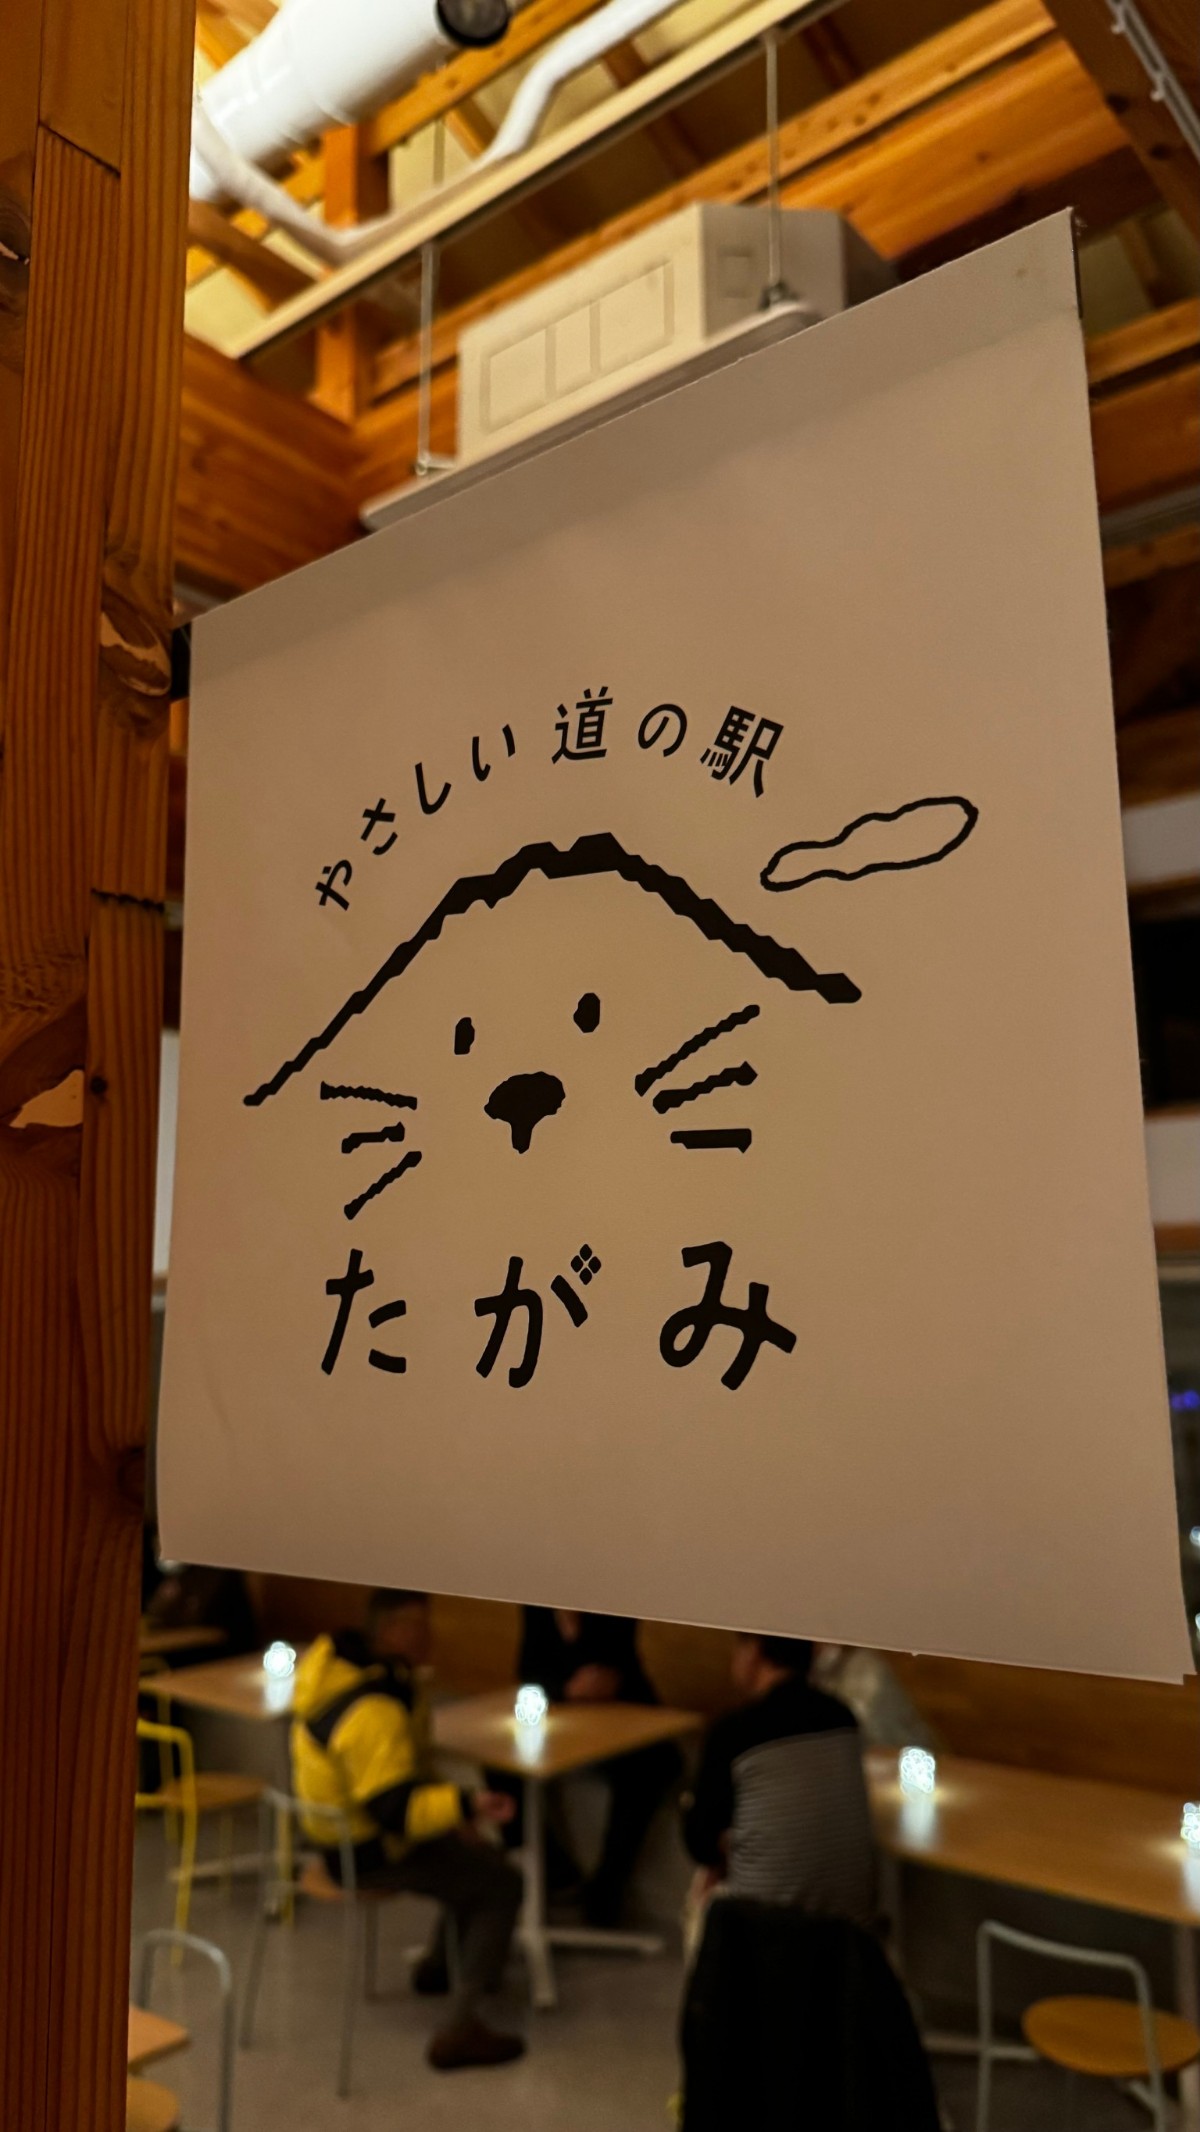 やさしい道の駅
たがみ